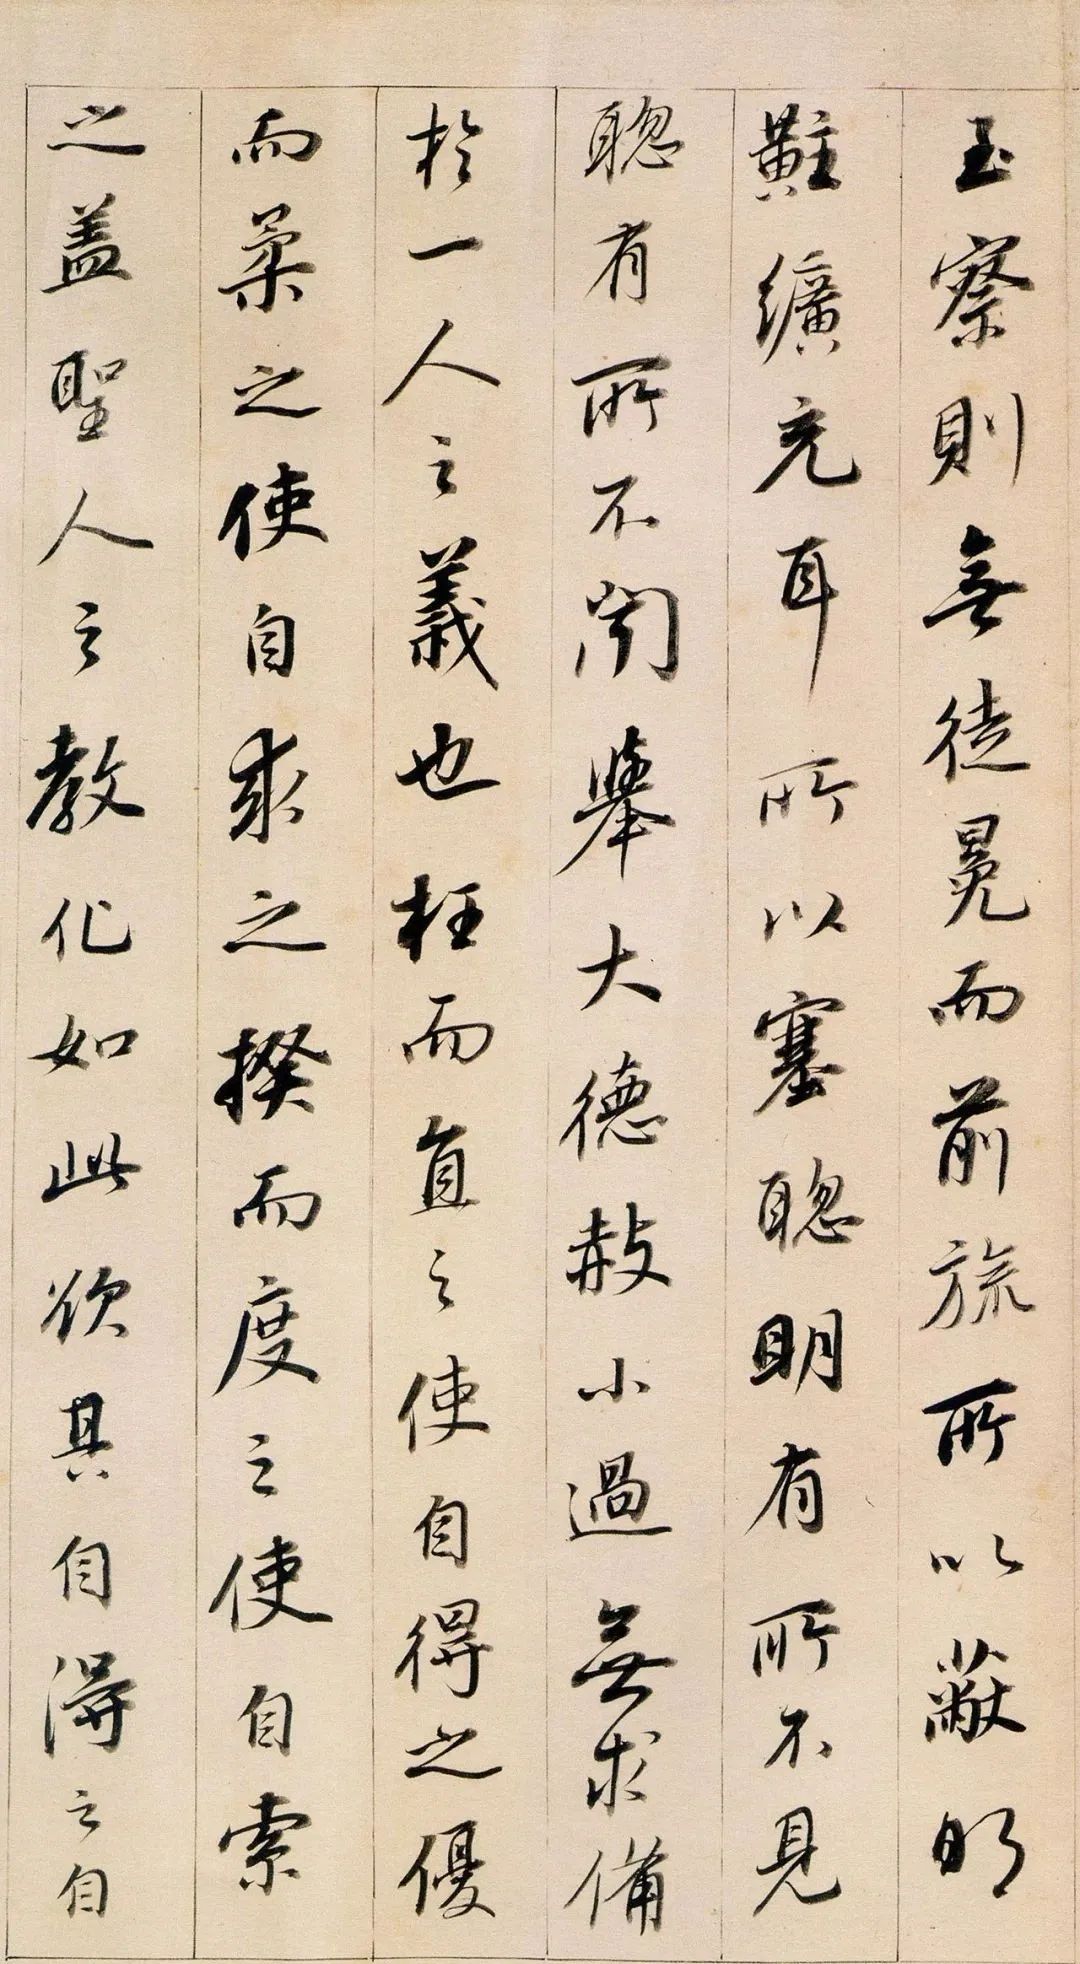 至察則無徒冕而前旒所以蔽明
黈纊充耳所以塞聰明有所不見
聰有所不聞舉大德赦小過無求備
於一人之義也枉而直之使自得之優
而柔之使自求之揆而度之使自索
之蓋聖人之教化如此欲其自得之自